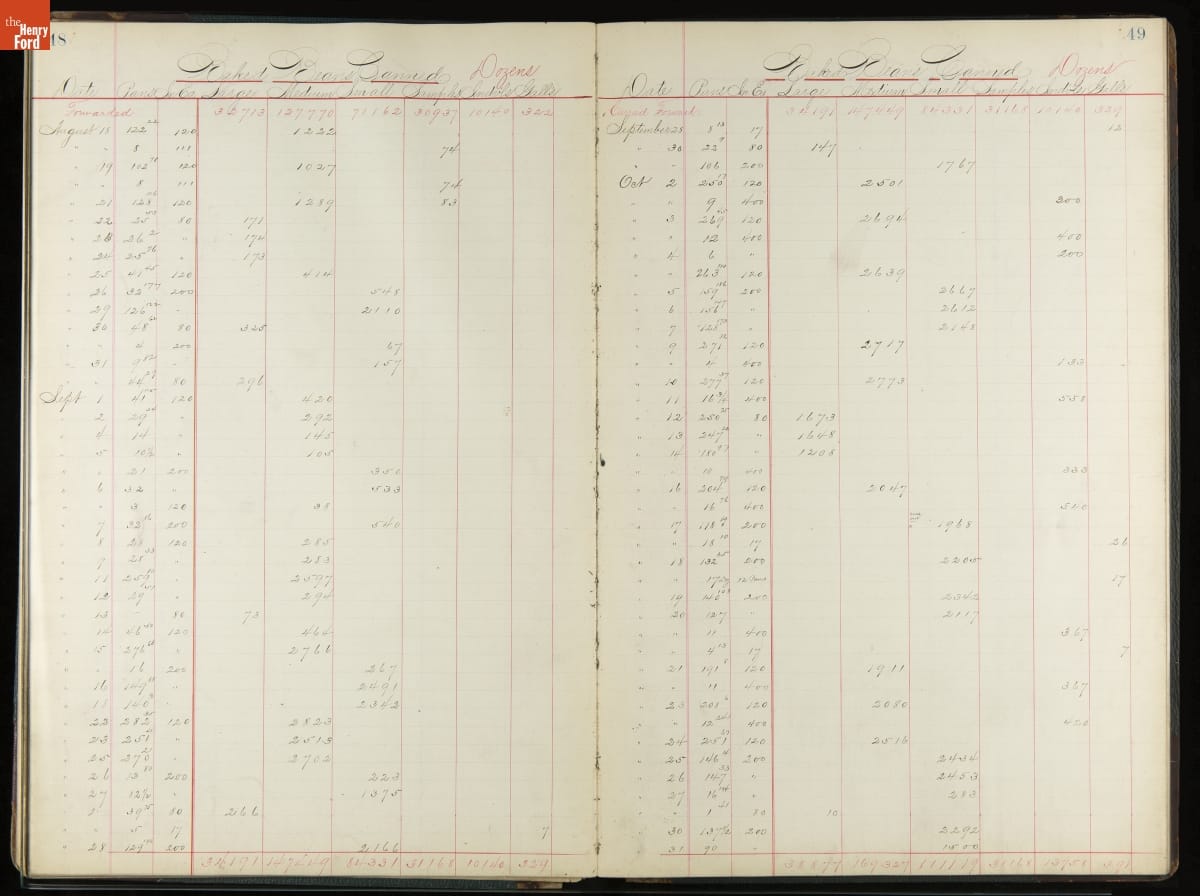 the
Henry
Ford
48
Baked Beans Canned Dozens
Date Pans In Ea Large Medium Small Samples Ind'ls Galls
Forwarded 32713 127770 71162 30937 10140 322
August 18 122 22 120 1222
" " 8 111 74
" 19 102 78 120 1027
" " 8 111 74
" 21 128 120 1289 83
" 22 25 80 171
" 23 26 " 174
" 24 25 " 173
" 25 41 45 120 414
" 26 32 177 200 548
" 29 126 122 " 2110
" 30 48 80 325
" " 4 200 67
" 31 9 82 " 157
" " 44 29 80 296
Sept 1 41 120 420
" 2 29 " 292
" 4 14 " 145
" 5 10½ " 105
" " 21 200 350
" 6 32 " 533
" " 3 120 38
" 7 32 16 200 540
" 8 28 120 285
" 9 28 33 " 283
" 11 259 " 2597
" 12 29 " 294
" 13 " 80 73
" 14 46 120 464
" 15 276 " 2766
" " 16 200 267
" 16 149 " 2491
" 18 140 " 2342
" 22 282 120 2823
" 23 251 " 2513
" 25 270 21 " 2702
" 26 13 80 200 223
" 27 12½ " 1375
" 39 80 266
" " 5 17 7
" 28 129 200 2166
34191 147449 84331 31168 10140 329
49
Baked Beans Canned Dozens
Date Pans In Ea Large Medium Small Samples Ind'ls Galls
Carried Forward 34191 147449 84331 31168 10140 329
September 28 8 13 17 12
" 30 22 9 80 147
" " 106 200 1767
Oct 2 250 120 2501
" " 9 400 300
" 3 269 120 2694
" " 12 400 400
" 4 6 " 200
" " 263 120 2639
" 5 159 200 2667
" 6 156 " 2612
" 7 128 " 2148
" 9 271 120 2717
" " 4 400 133
" 10 277 37 120 2773
" 11 16 400 550
" 12 250 25 80 1673
" 13 247 " 1648
" 14 180 " 1208
" " 10 400 333
" 16 204 120 2047
" " 16 76 400 540
" 17 118 200 1968
" " 18 10 17 26
" 18 132 200 2205
" " 17 17
" 19 140 200 2342
" 20 127 " 2117
" " 11 400 367
" " 4 13 17 7
" 21 191 8 120 1911
" " 11 400 367
" 23 208 120 2080
" " 12 400 420
" 24 251 120 2516
" 25 146 200 2434
" 26 147 33 " 2453
" 27 16 " 283
" " 1 41 80 10
" 30 137½ 200 2292
" 31 90 " 1500
38877 169327 111119 31168 13758 391